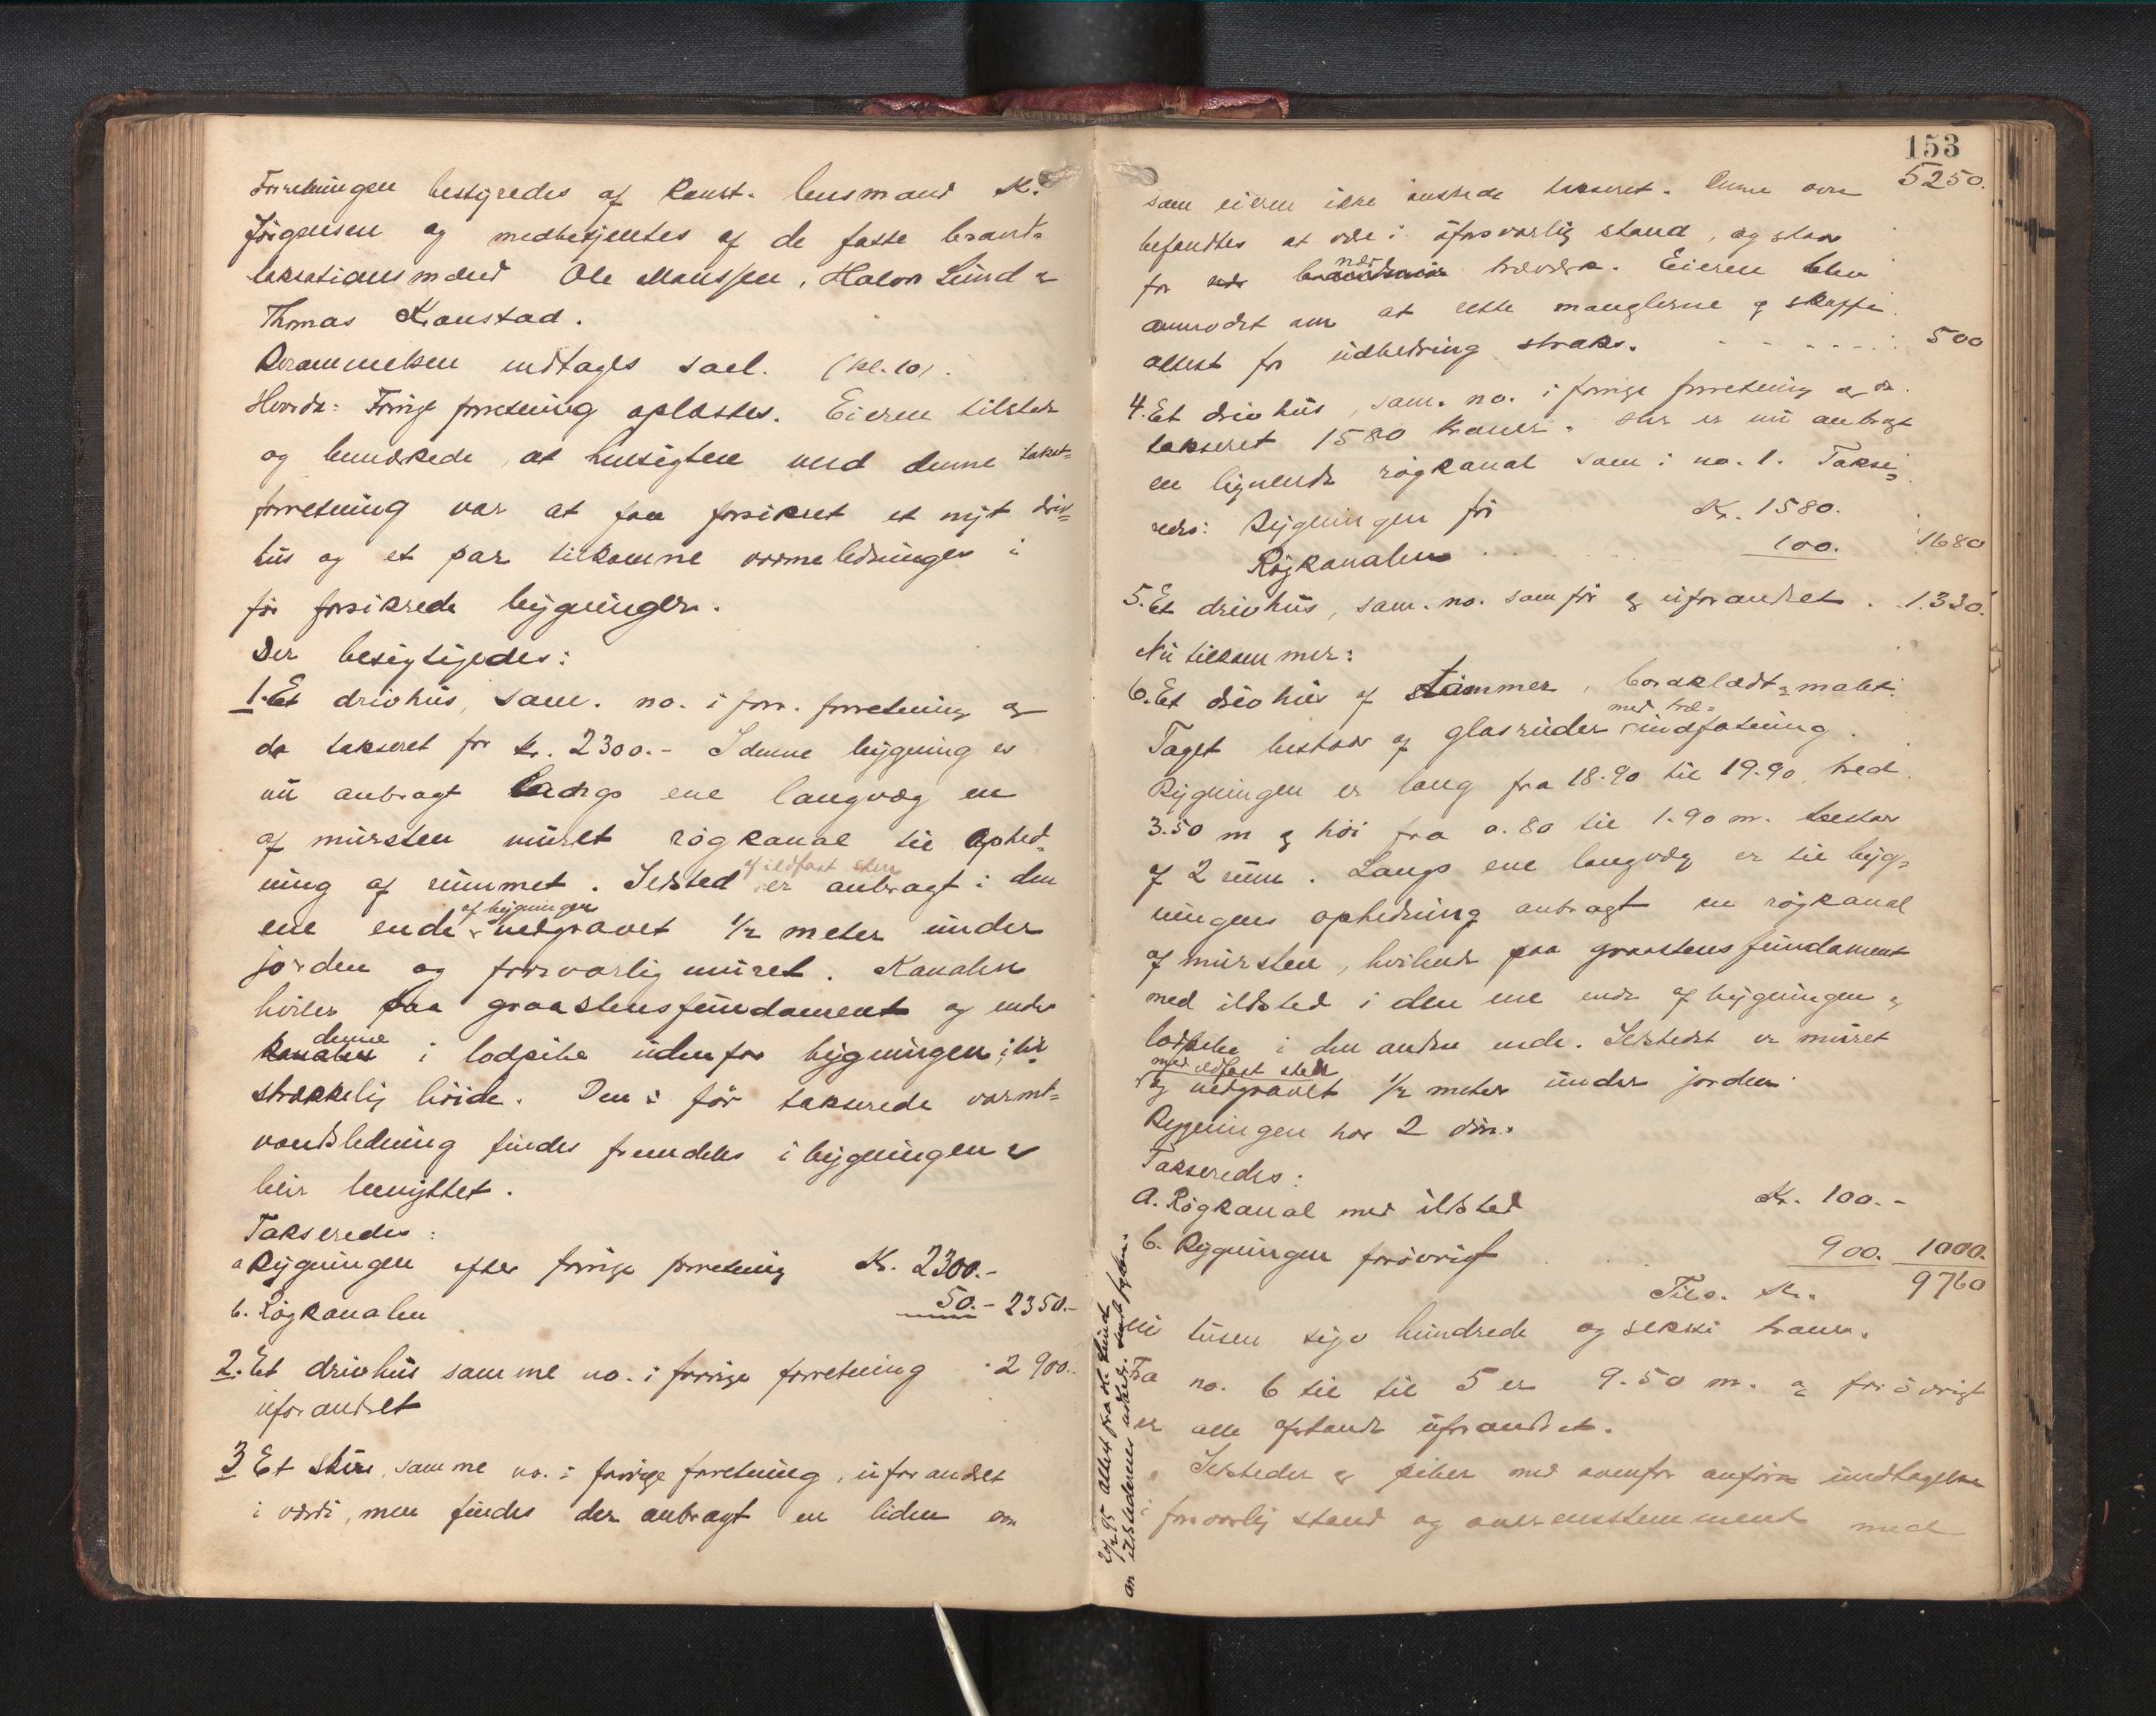 Forretningen bestyredes af konst. lensmand K.
Jörgensen og medbetjentes af de faste brand-
taksationsmænd Ole Monssen, Halvor Lund &
Thomas Kronstad.
Rammelsen indtages saal. (kl. 10).
Hvorda: Forrige forretning oplæstes. Eieren tilsted
og bemærkede, at hensigten med denne takst-
forretning var at faa forsikret et nyt driv-
hus og et par tilkomne varmeledninger i
før forsikrede bygninger.
Der besigtigedes:
1. Et drivhus, sam. no. i forr. forretning og
da takseret for kr. 2300.- I denne bygning er
nu anbragt langs ene langvæg en
af mursten muret rögkanal til ophed-
ning af rummet. Ildsted af ildfast sten er anbragt i den
ene ende af bygningen nedgravet 1/2 meter under
jorden og forsvarlig muret. Kanalen
hviler paa graastensfundament og ender
denne i lodpibe udenfor bygningen i til-
strækkelig höide. Den i för takserede varmt-
vandsledning findes fremdeles i bygningen &
blir benyttet.
Takseredes:
a Bygningen efter forrige forretning Kr. 2300.-
b. Rögkanalen 50.- 2350.-
2. Et drivhus samme no. i forrige forretning 2900.-
uforandret
3 Et skur, samme no. i forrige forretning, uforandret
i værdi, men findes der anbragt en liden ovn
153
5250.
som eieren ikke önskede takseret. Denne ovn
befandtes at være i uforsvarlig stand, og staar
for nær træværk. Eieren blev
anmodet om at rette manglerne & skaffe
attest for udbedring straks. 500
4. Et drivhus, sam. no. i forrige forretning og da
takseret 1580 kroner. Her er nu anbragt
en lignende rögkanal som i no. 1. Takse-
redes: Bygningen för Kr. 1580.
Rögkanalen 100. 1680
5. Et drivhus, sam. no. som för & uforandret. 1.330.
Nu tilkommer:
6. Et drivhus af tömmer, bordklædt & malet.
Taget bestaar af glasruder med træ-indfatning.
Bygningen er lang fra 18.90 til 19.90, bred
3.50 m & höi fra 0.80 til 1.90 m. bestaar
af 2 rum. Langs ene langvæg er til byg-
ningens ophedning anbragt en rögkanal
af mursten, hvilende paa graastensfundament
med ildsted i den ene ende af bygningen &
lodpibe i den anden ende. Ildstedet er muret
med ildfast sten
og nedgravet 1/2 meter under jorden.
Bygningen har 2 dör.
Takseredes:
a. Rögkanal med ildsted Kr. 100.-
b. Bygningen forövrigt 900. 1000.
Tils. Kr. 9760
ni tusen syv hundrede og seksti kroner.
Fra no. 6 til til 5 er 9.50 m. og forövrigt
er alle afstande uforandret.
Ildsteder & piber med ovenfor anförte undtagelse
i forsvarlig stand og overensstemmende med
20/2 95 attest fra H. Lund
om ildstedernes udbedr.